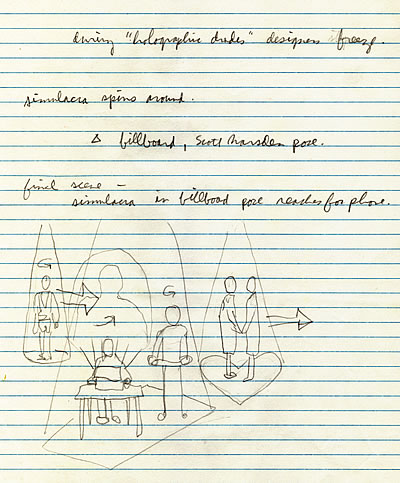 during "holographic dudes" designers freeze.
simulacra spins around.
Δ billboard, Scott Marsden pose.
final scene –
simulacra in billboad pose reaches for phone.